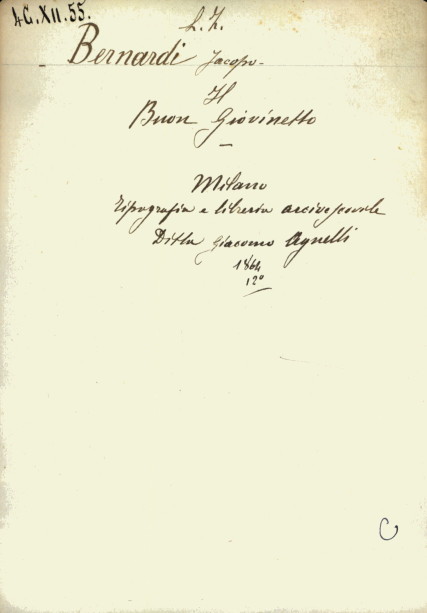 4G.XII.55.
L. Z.
Bernardi Jacopo-
Il
Buon Giovinetto
Milano
Tipografia e libreria arcivescovile
Ditta Giacomo Agnelli
1864
12º
C